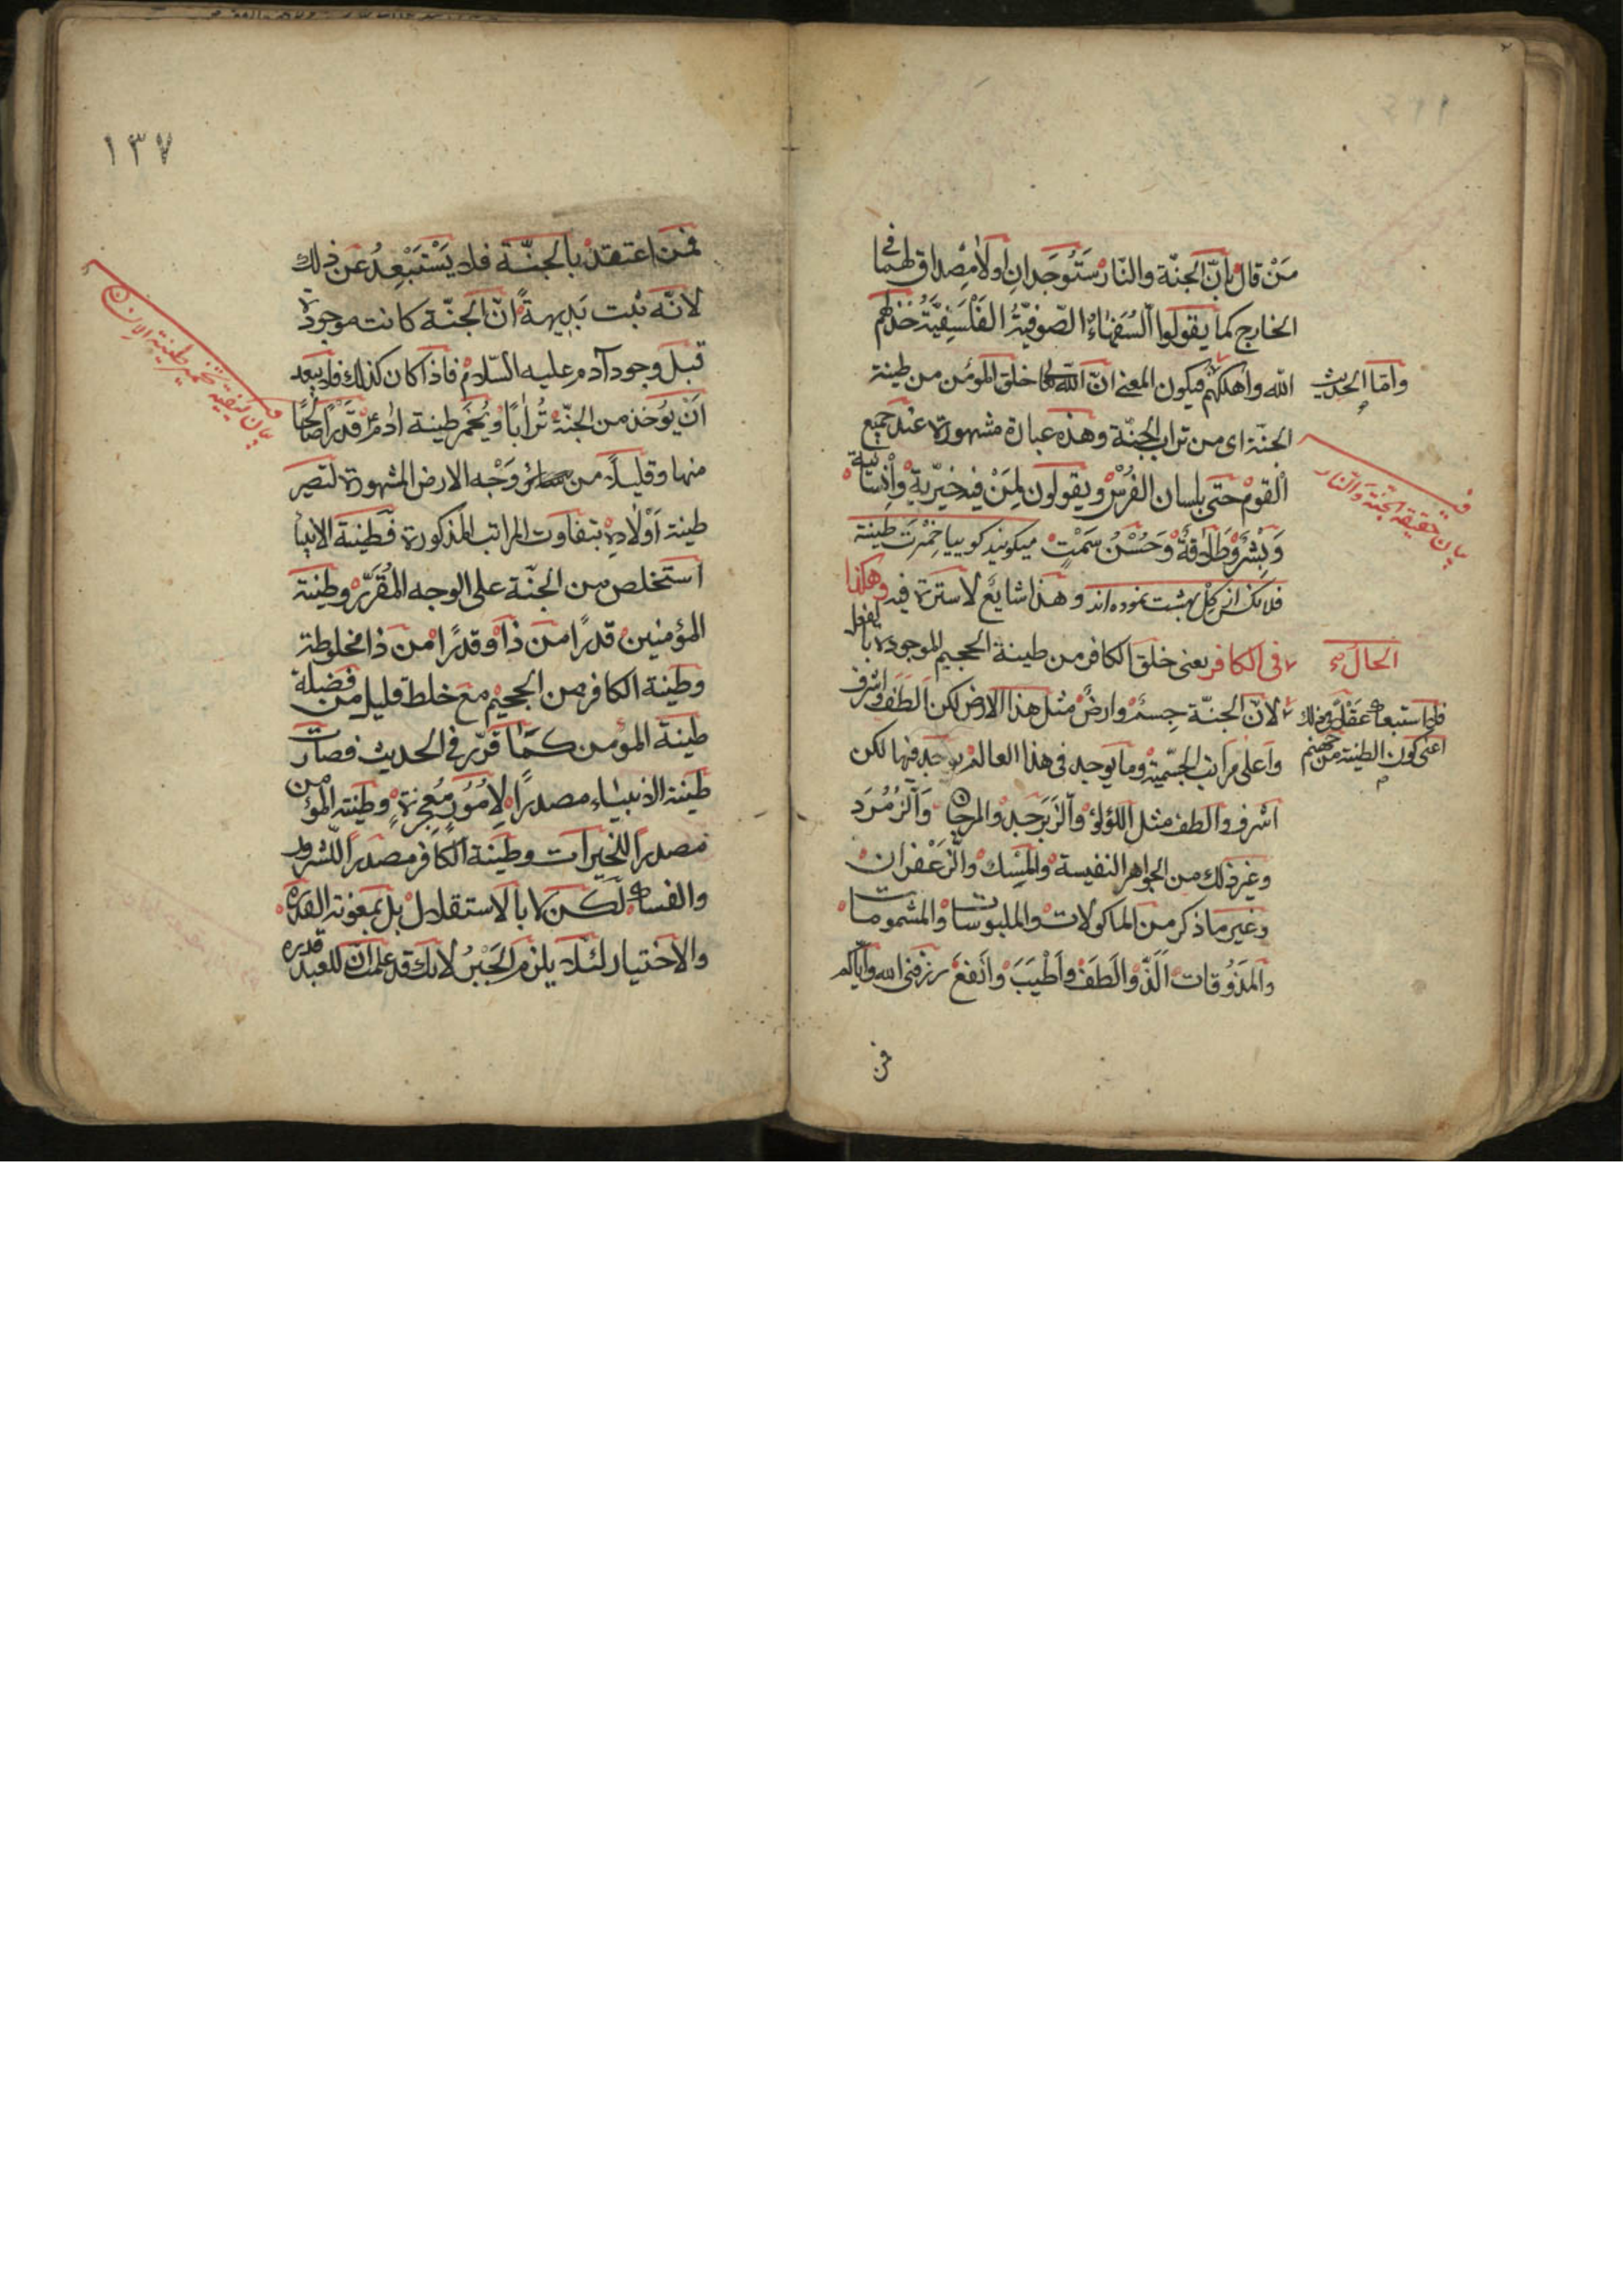 مَنْ قال بانّ الجنّة والنّار سَتُوجَدانِ اولا مِصداق لهما في
الخارج كما يقولوا السُفَهاءُ الصّوفيّةُ الفَلْسَفِيَّةُ خذلهم
الله واهلكهم فيكون المعنى انّ الله خلق المؤمن من طينة
وامّا الحديث
الجنّة اى من تراب الجنّة وهذه عبارة مشهورة عند جميع
القوم حتى بلسان الفُرْس ويقولون لِمَنْ فيه خيّرية وانسانية
بيان حقيقة الجنّة والنّار
وَبِشْر وَطَلاقَةٌ وَحُسْنُ سَمْتٍ ميكويند كوييا خمّرت طينة
فلانكس از كِل بهشت نموده اند وهذا شايع لا سترة فيه وهكذا
الحال
فى الكافر يعنى خلق الكافر من طينة الجحيم الموجودة بالفعل
لان الجنّة جِسمٌ وارضٌ مثل هذا الارض لكن الطف واشرف
اعنى كون الطينة من جهنم
واعلى مراتب الجسميّة وما يوجد فى هذا العالم يوجد فيها لكن
اشرف والطف مثل اللؤلؤ والزَبَرجَد والمرجان والزُمُرَد
وغير ذلك من الجواهر النفيسة والمِسك والزَعْفران
وغير ما ذكر من الماكولات والملبوسات والمشمومات
والمَذُوقات اَلَذّ والطَف واطْيَبَ وانفعَ رزقنى الله واياكم
فمن
١٣٧
فمن اعتقد بالجنّة فلا يَسْتَبْعِدُ عن ذلك
لانّه ثبت بَدِيهةً انّ الجنّة كانت موجودة
قبل وجود آدم عليه السّلام فاذا كان كذلك فلا يبعد
انّ يُوخذ من الجنّة تُرابًا ويُخمّر طينة ادم قَدْرًا صالحًا
بيان كيفية تخمير طينة الانسان
منها وقليلاً من وَجْه الارض المشهورة لتصير
طينة اَوْلادِه بتفاوت المراتب المذكورة فطينة الانبيا
استخلص من الجنّة على الوجه المُقَرّر وطينة
المؤمنين قدرًا من ذا وقدرًا من ذا مخلوطة
وطينة الكافر من الجحيم مع خلط قليل من فضلة
طينة المؤمن كما قرّر فى الحديث فصارت
طينة الانبياء مصدرًا لِامُورٍ مُعجِزةٍ وطينة المؤمن
مصدرا للخيرات وطينة الكافر مصدرا للشرور
والفساد لكن لا بالاستقلال بل بمعونة القدرة
والاختيار لئلا يلزم الجَبْرُ لانك قد علمت ان للعبد قدره